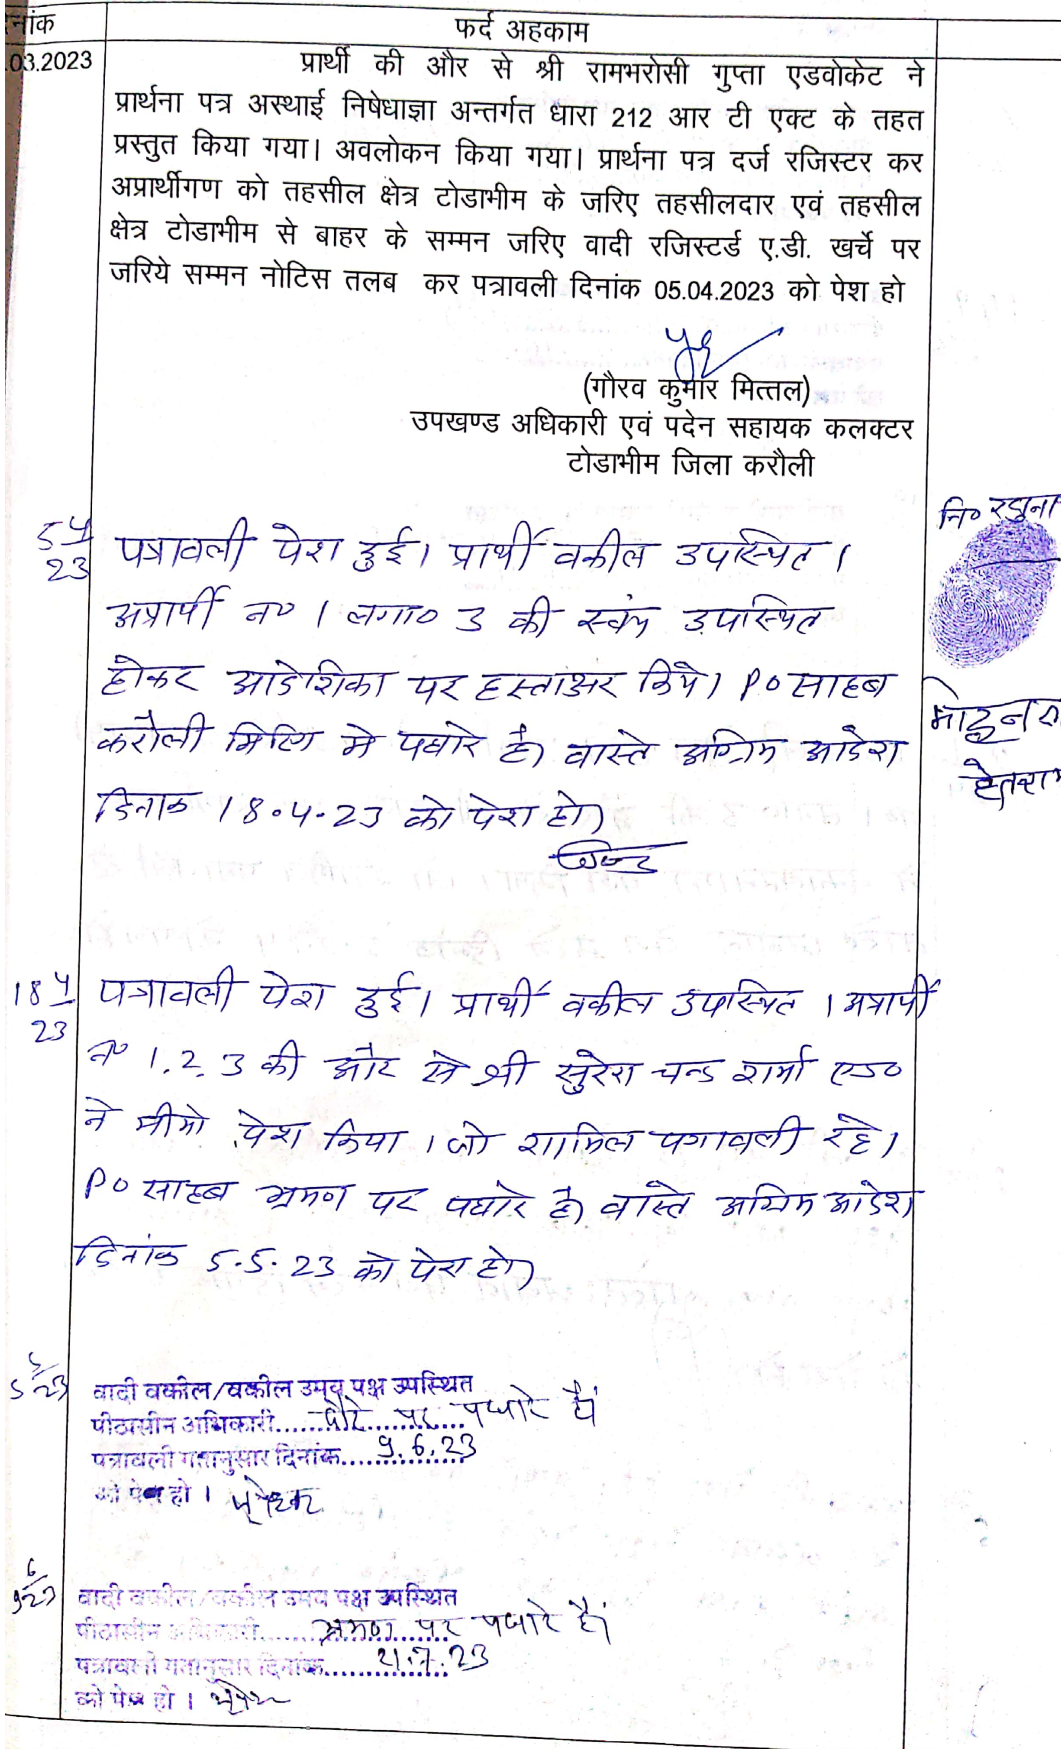 नांक
फर्द अहकाम
.03.2023
प्रार्थी की और से श्री रामभरोसी गुप्ता एडवोकेट ने
प्रार्थना पत्र अस्थाई निषेधाज्ञा अन्तर्गत धारा 212 आर टी एक्ट के तहत
प्रस्तुत किया गया। अवलोकन किया गया। प्रार्थना पत्र दर्ज रजिस्टर कर
अप्रार्थीगण को तहसील क्षेत्र टोडाभीम के जरिए तहसीलदार एवं तहसील
क्षेत्र टोडाभीम से बाहर के सम्मन जरिए वादी रजिस्टर्ड ए.डी. खर्चे पर
जरिये सम्मन नोटिस तलब कर पत्रावली दिनांक 05.04.2023 को पेश हो
(गौरव कुमार मित्तल)
उपखण्ड अधिकारी एवं पदेन सहायक कलक्टर
टोडाभीम जिला करौली
नि०
5 4/23 पत्रावली पेश हुई। प्रार्थी वकील उपस्थित।
अप्रार्थी न० 1 लगा० 3 की स्वंय उपस्थित
होकर आदेशिका पर हस्ताक्षर किये। PO साहब
करौली मिटिंग मे पधारे है। वास्ते अग्रिम आदेश
दिनांक 18.4.23 को पेश हो।
18 4/23 पत्रावली पेश हुई। प्रार्थी वकील उपस्थित। अप्रार्थी
न० 1.2.3 की और से श्री सुरेश चन्द शर्मा एड०
ने मीमो पेश किया। जो शामिल पत्रावली रहे।
PO साहब भ्रमण पर पधारे है। वास्ते अग्रिम आदेश
दिनांक 5.5.23 को पेश हो।
5 5/23 वादी वकील/वकील उभय पक्ष उपस्थित
पीठासीन अधिकारी.....दौरे पर पधारे हैं
पत्रावली गतानुसार दिनांक.....9.6.23
को पेश हो।
9 6/23 वादी वकील/वकील उभय पक्ष उपस्थित
पीठासीन अधिकारी.....भ्रमण पर पधारे हैं।
पत्रावली गतानुसार दिनांक.....21.7.23
को पेश हो।